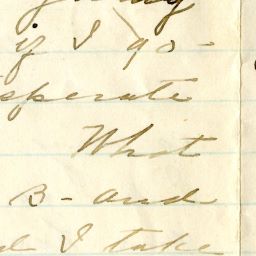 if I go -
sperate
What
B - and
d I take